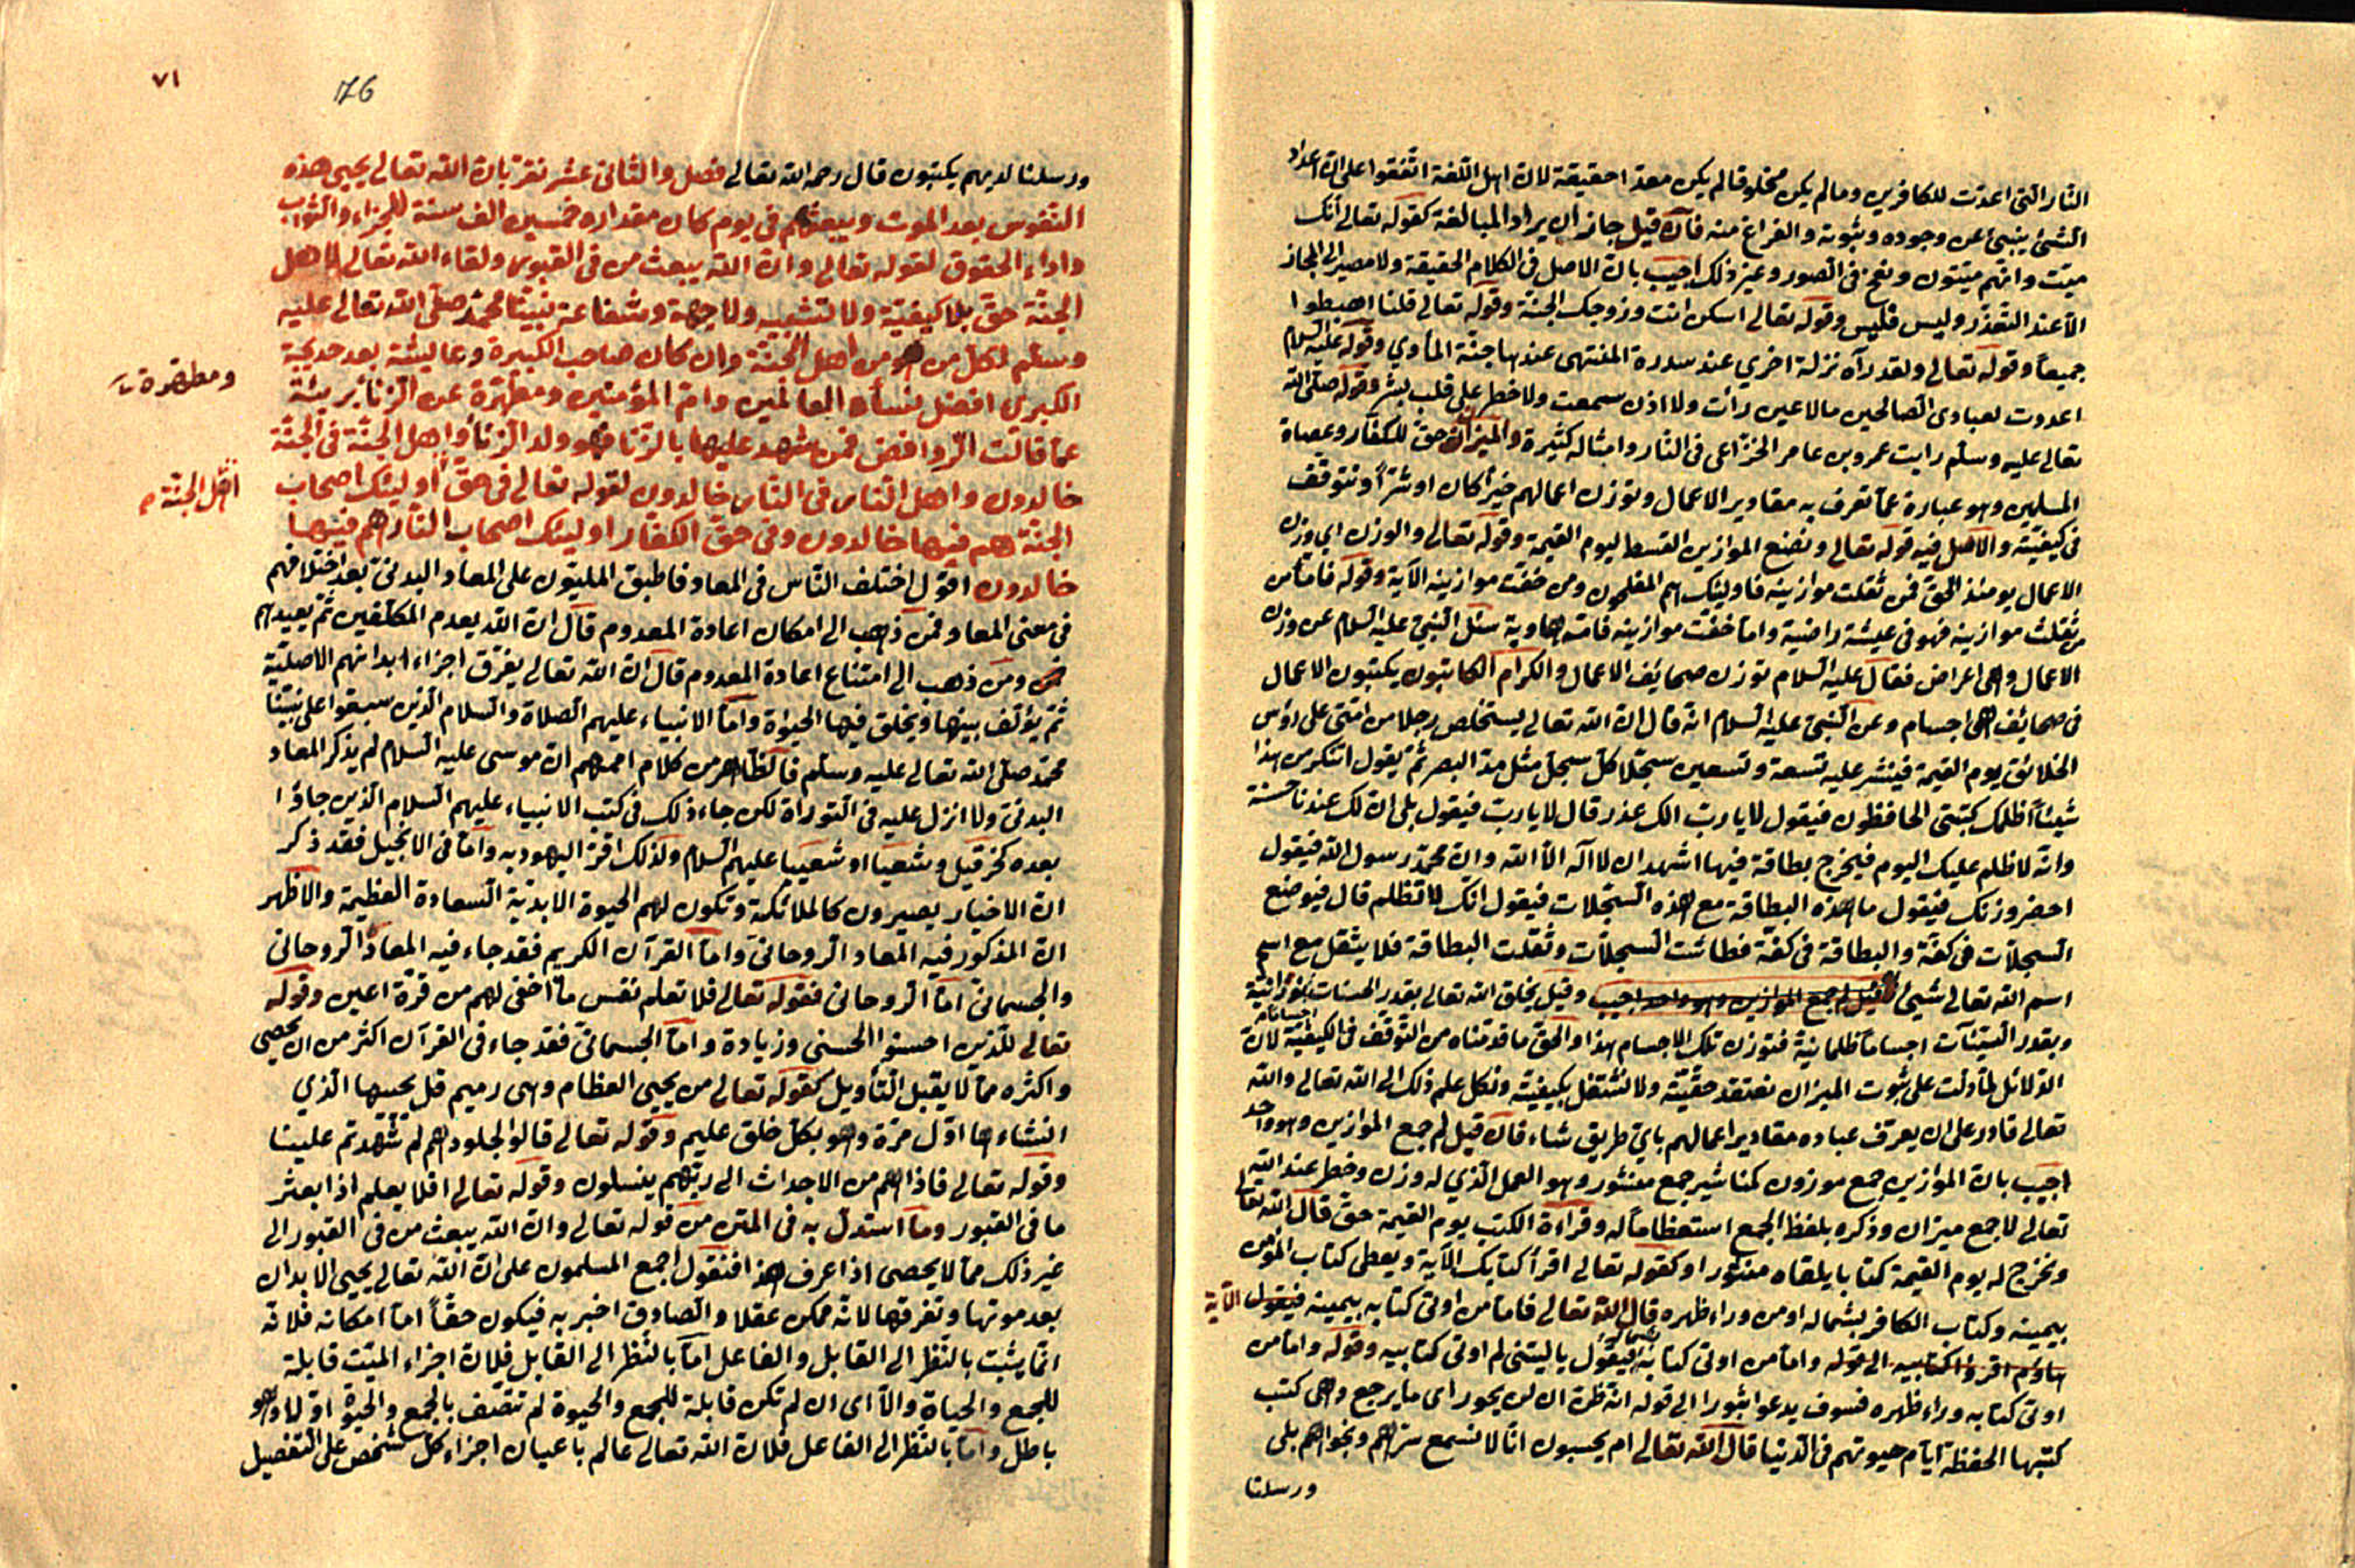 النار التى اعدت للكافرين وما لم يكن مخلوقا لم يكن معدا حقيقة لان اهل اللغة اتفقوا على ان اعداد
الشئ ينبئ عن وجوده وثبوته والفراغ منه فان قيل جاز ان يراد المبالغة كقوله تعالى انك
ميت وانهم ميتون ونفخ فى الصور وغير ذلك اجيب بان الاصل فى الكلام الحقيقة ولا مصير الى المجاز
الا عند التعذر وليس فليس وقوله تعالى اسكن انت وزوجك الجنة وقوله تعالى قلنا اهبطوا
جميعا وقوله تعالى ولقد رآه نزلة اخري عند سدرة المنتهى عندها جنة المأوي وقوله عليه السلام
اعددت لعبادى الصالحين ما لا عين رأت ولا اذن سمعت ولا خطر على قلب بشر وقوله صلى الله
تعالى عليه وسلم رايت عمرو بن عامر الخزاعى فى النار وامثاله كثيرة والميزان حق للكفار وعصاة
المسلمين وهو عبارة عما تعرف به مقادير الاعمال وتوزن اعمالهم خيرا كان او شرا ونتوقف
فى كيفيته والاصل فيه قوله تعالى ونضع الموازين القسط ليوم القيمة وقوله تعالى والوزن اى وزن
الاعمال يومئذ الحق فمن ثقلت موازينه فاوليئك هم المفلحون ومن خفت موازينه الآية وقوله فاما من
ثقلت موازينه فهو فى عيشة راضية واما من خفت موازينه فامه هاوية سئل النبي عليه السلام عن وزن
الاعمال وهى اعراض فقال عليه السلام توزن صحائف الاعمال والكرام الكاتبون يكتبون الاعمال
فى صحائف هى اجسام وعن النبي عليه السلام انه قال ان الله تعالى يستخلص رجلا من امتى على رؤس
الخلائق يوم القيمة فينشر عليه تسعة وتسعين سجلا كل سجل مثل مد البصر ثم يقول اتنكر من هذا
شيئا اظلمك كتبتى الحافظون فيقول لا يا رب الك عذر قال لا يا رب فيقول بلى ان لك عندنا حسنة
وانه لا ظلم عليك اليوم فيخرج بطاقة فيها اشهد ان لا اله الا الله وان محمد رسول الله فيقول
احضر وزنك فيقول ما هذه البطاقة مع هذه السجلات فيقول انك لا تظلم قال فيوضع
السجلات فى كفة والبطاقة فى كفة فطاشت السجلات وثقلت البطاقة فلا يثقل مع اسم
اسم الله تعالى شيئ قيل لم جمع الموازين وهو واحد اجيب وقيل يخلق الله تعالى بقدر الحسنات اجساما نورانية
وبقدر السيئات اجساما ظلمانية فتوزن تلك الاجسام هذا والحق ما قدمناه من التوقف فى الكيفية لان
الدلائل لما دلت على ثبوت الميزان نعتقد حقيته ولا نشتغل بكيفيته ونكل علم ذلك الى الله تعالى والله
تعالى قادر على ان يعرف عباده مقادير اعمالهم باي طريق شاء فان قيل لم جمع الموازين وهو واحد
اجيب بان الموازين جمع موزون كمناشير جمع منشور وهو العمل الذي له وزن وخطر عند الله
تعالى لا جمع ميزان وذكره بلفظ الجمع استعظاما له وقراءة الكتب يوم القيمة حق قال الله تعالى
ونخرج له يوم القيمة كتابا يلقاه منشورا وكقوله تعالى اقرأ كتابك الآية ويعطى كتاب المؤمن
بيمينه وكتاب الكافر بشماله او من وراء ظهره قال الله تعالى فاما من اوتى كتابه بيمينه فيقول الآية
هاؤم اقرؤا كتابيه الى قوله واما من اوتى كتابه بشماله فيقول يا ليتنى لم اوتى كتابيه وقوله واما من
اوتى كتابه وراء ظهره فسوف يدعوا ثبورا الى قوله انه ظن ان لن يحور اى ما يرجع وهى كتب
كتبها الحفظة ايام حيوتهم فى الدنيا قال الله تعالى ام يحسبون انا لا نسمع سرهم ونجواهم بلى
ورسلنا
٧١
176
ورسلنا لديهم يكتبون قال رحمه الله تعالى فصل والثانى عشر نقر بان الله تعالى يحيى هذه
النفوس بعد الموت ويبعثهم فى يوم كان مقداره خمسين الف سنة للجزاء والثواب
واداء الحقوق لقوله تعالى وان الله يبعث من فى القبور ولقاء الله تعالى لاهل
الجنة حق بلا كيفية ولا تشبيه ولا جهة وشفاعة نبينا محمد صلى الله تعالى عليه
وسلم لكل من هو من اهل الجنة وان كان صاحب الكبيرة وعايشة بعد خديجة
الكبرى افضل نساء العالمين وام المؤمنين ومطهرة عن الزنا بريئة
ومطهرة
عما قالت الروافض فمن شهد عليها بالزنا فهو ولد الزنا واهل الجنة فى الجنة
خالدون واهل النار فى النار خالدون لقوله تعالى فى حق اوليئك اصحاب
اهل الجنة
الجنة هم فيها خالدون وفى حق الكفار اوليئك اصحاب النار هم فيها
خالدون اقول اختلف الناس فى المعاد فاطبق المليون على المعاد البدنى بعد اختلافهم
فى معنى المعاد فمن ذهب الى امكان اعادة المعدوم قال ان الله يعدم المكلفين ثم يعيدهم
ومن ذهب الى امتناع اعادة المعدوم قال ان الله تعالى يفرق اجزاء ابدانهم الاصلية
ثم يؤلف بينها ويخلق فيها الحيوة واما الانبياء عليهم الصلاة والسلام الذين سبقوا على نبينا
محمد صلى الله تعالى عليه وسلم فالظاهر من كلام اممهم ان موسى عليه السلام لم يذكر المعاد
البدنى ولا انزل عليه فى التوراة لكن جاء ذلك فى كتب الانبياء عليهم السلام الذين جاؤا
بعده كحزقيل وشعيا او شعييا عليهم السلام ولذلك اقر اليهود به واما فى الانجيل فقد ذكر
ان الاخيار يصيرون كالملائكة وتكون لهم الحيوة الابدية السعادة العظيمة والاظهر
ان المذكور فيه المعاد الروحانى واما القرآن الكريم فقد جاء فيه المعاد الروحانى
والجسمانى اما الروحانى فقوله تعالى فلا تعلم نفس ما اخفى لهم من قرة اعين وقوله
تعالى للذين احسنوا الحسنى وزيادة واما الجسمانى فقد جاء فى القرآن اكثر من ان يحصى
واكثره مما لا يقبل التأويل كقوله تعالى من يحيى العظام وهى رميم قل يحييها الذي
انشاءها اول مرة وهو بكل خلق عليم وقوله تعالى قالوا لجلودهم لم شهدتم علينا
وقوله تعالى فاذا هم من الاجداث الى ربهم ينسلون وقوله تعالى افلا يعلم اذا بعثر
ما فى القبور وما استدل به فى المتن من قوله تعالى وان الله يبعث من فى القبور الى
غير ذلك مما لا يحصى اذا عرف هذا فنقول اجمع المسلمون على ان الله تعالى يحيى الابدان
بعد موتها وتفرقها لانه ممكن عقلا والصادق اخبر به فيكون حقا اما امكانه فلانه
انما يثبت بالنظر الى القابل والفاعل اما بالنظر الى القابل فلان اجزاء الميت قابلة
للجمع والحياة والا اى ان لم تكن قابلة للجمع والحيوة لم تتصف بالجمع والحيوة اولا وهو
باطل واما بالنظر الى الفاعل فلان الله تعالى عالم باعيان اجزاء كل شخص على التفصيل